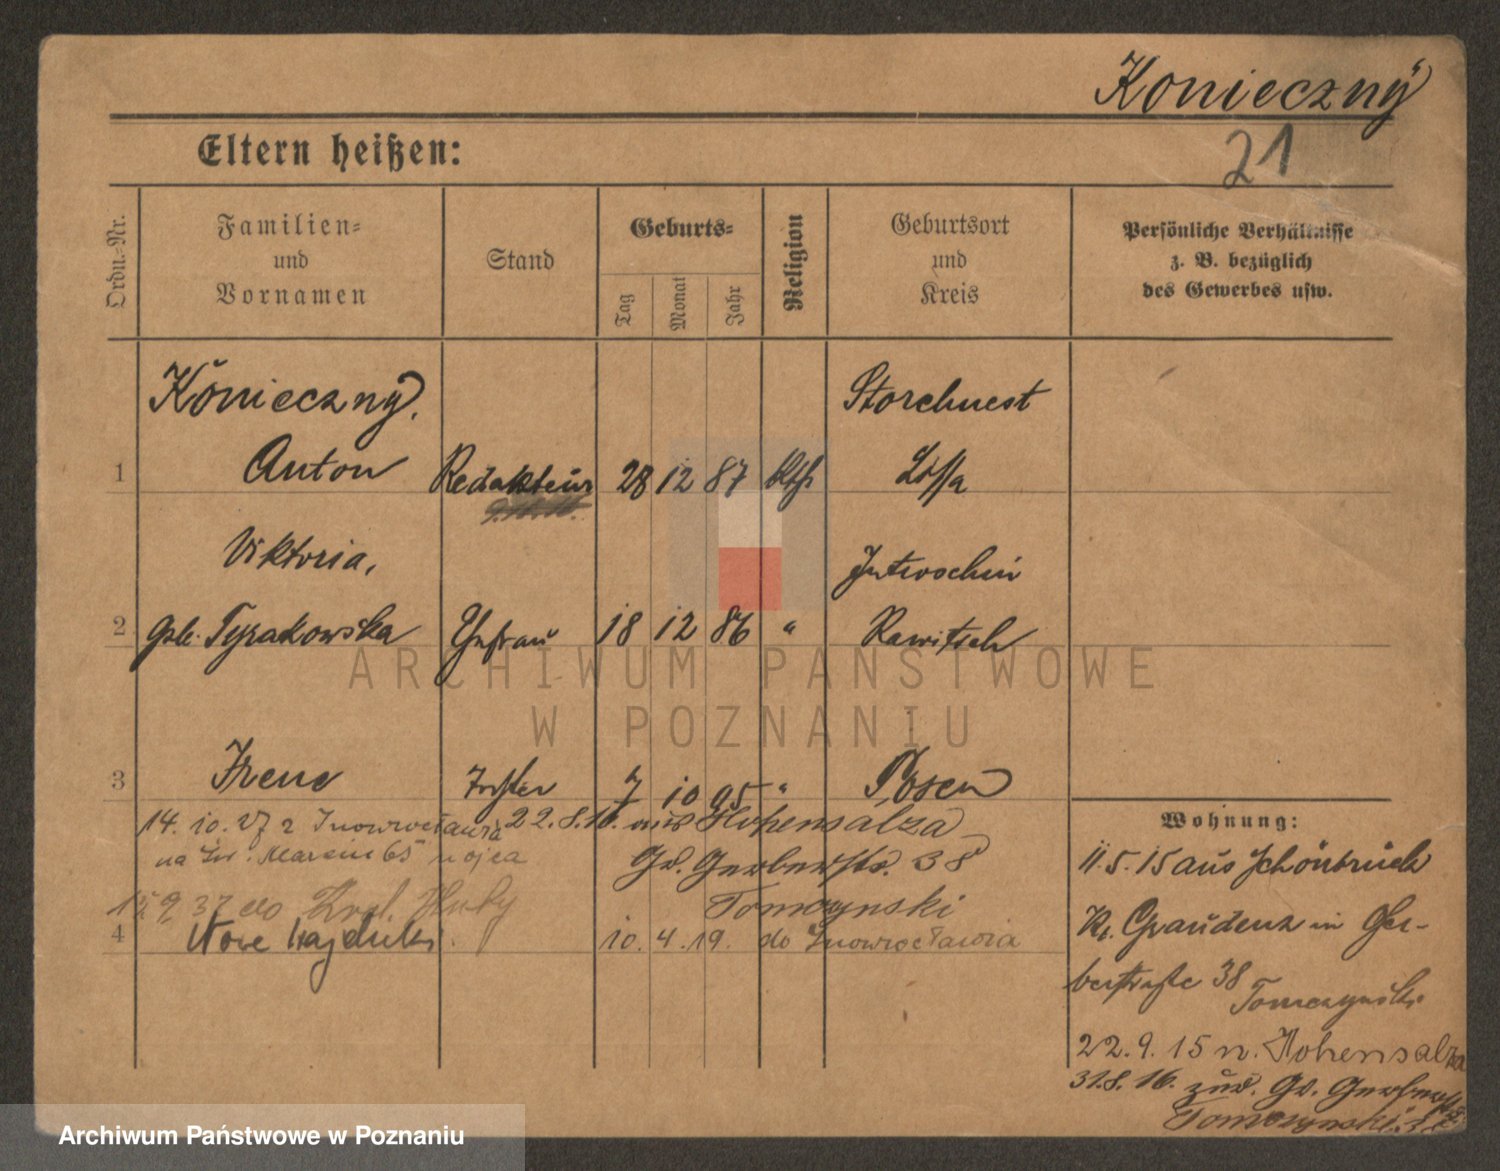 Konieczny
21
Eltern heißen:
Ordn.-Nr.
Familien-
und
Vornamen
Stand
Geburts-
Tag
Monat
Jahr
Religion
Geburtsort
und
Kreis
Persönliche Verhältnisse
z. B. bezüglich
des Gewerbes usw.
Konieczny,
Storchnest
1 Anton Redakteur 28 12 87 kth Lissa
Viktoria,
Jutroschin
2 geb. Tyrakowska Ehefrau 18 12 86 " Rawitsch
3 Irene Tochter 7 10 95 " Posen
14. 10. 27 z Inowrocławia 22.8.16. aus Hohensalza
na Św. Marcin 65 ojca
Gr. Gerberstr. 38
15 9 37 do Król. Huty
Tomczynski
4 Nowe Hajduki. 10. 4. 19. do Inowrocławia
Wohnung:
11.5.15 aus Schönbrück
Kr. Graudenz in Ger-
berstraße 38
Tomczynski
22.9.15 n. Hohensalza
31.8.16. zur. Gr. Gerberstr
Tomczynski 38
ARCHIWUM PAŃSTWOWE
W POZNANIU
Archiwum Państwowe w Poznaniu